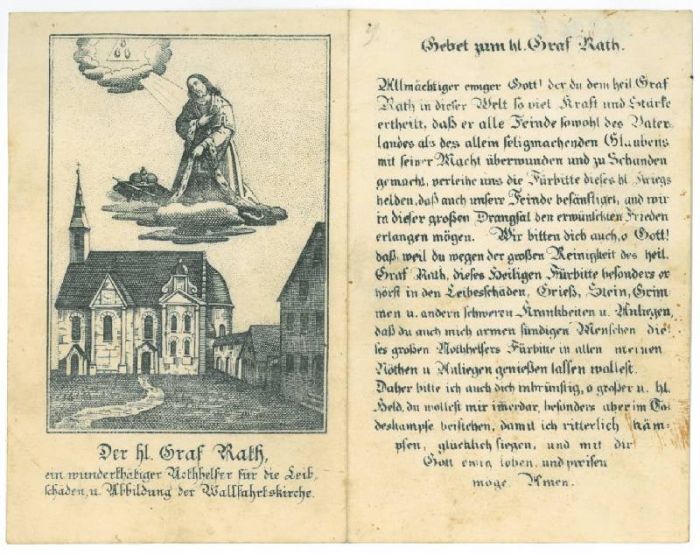 Der hl. Graf Rath,
ein wunderthätiger Nothhelfer für die Leib-
schäden, u. Abbildung der Wallfahrtskirche.
Gebet zum hl. Graf Rath.
Allmächtiger ewiger Gott! der du dem heil Graf
Rath in dieser Welt so viel Kraft und Stärke
ertheilt, daß er alle Feinde sowohl des Vater-
landes als des allein seligmachenden Glaubens
mit seiner Macht überwunden und zu Schanden
gemacht, verleihe uns die Fürbitte dieses hl. Kriegs
helden, daß auch unsere Feinde besänftiget, und wir
in dieser großen Drangsal den erwünschten Frieden
erlangen mögen. Wir bitten dich auch, o Gott!
daß, weil du wegen der großen Reinigkeit des heil.
Graf Rath, dieses Heiligen Fürbitte besonders er
hörst in den Leibesschäden, Grieß, Stein, Grim
men u. andern schweren Krankheiten u. Anliegen,
daß du auch mich armen sündigen Menschen die-
ses großen Nothhelfers Fürbitte in allen meinen
Nöthen u Anliegen genießen lassen wollest.
Daher bitte ich auch dich inbrünstig, o großer u. hl.
Held, du wollest mir imerdar, besonders aber im To-
deskampfe beistehen, damit ich ritterlich käm-
pfen, glücklich siegen, und mit dir
Gott ewig loben, und preisen
möge. Amen.